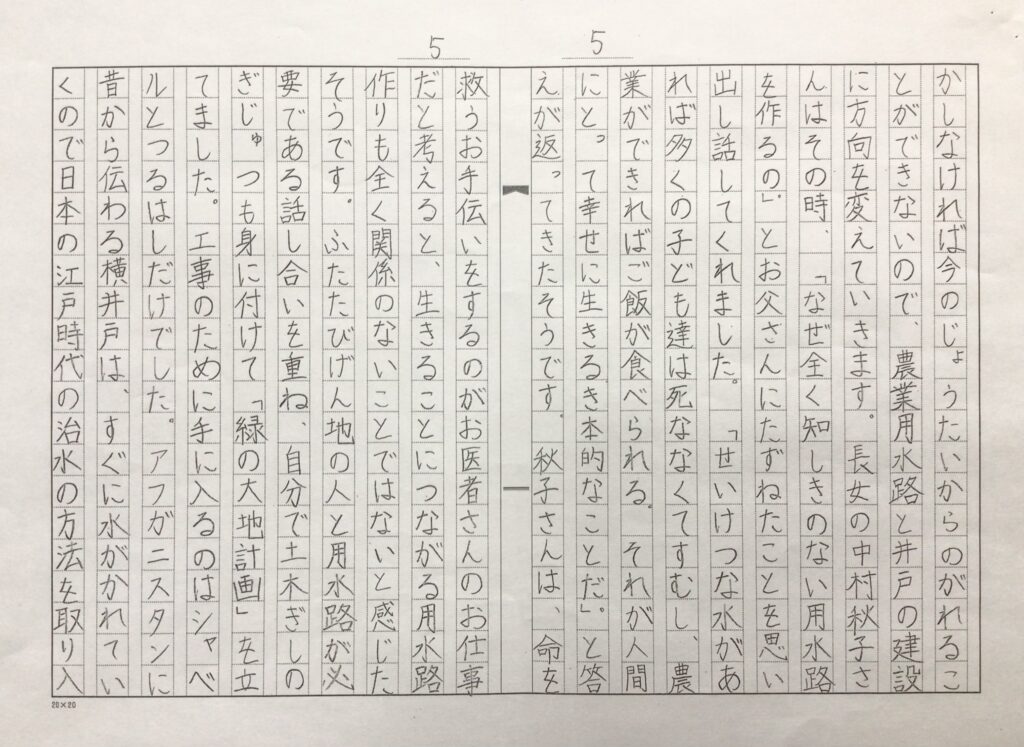 5
5
かしなければ今のじょうたいからのがれるこ
とができないので、農業用水路と井戸の建設
に方向を変えていきます。長女の中村秋子さ
んはその時、「なぜ全く知しきのない用水路
を作るの」とお父さんにたずねたことを思い
出し話してくれました。「せいけつな水があ
れば多くの子ども達は死ななくてすむし、農
業ができればご飯が食べられる。それが人間
にとって幸せに生きるき本的なことだ」。と答
えが返ってきたそうです。秋子さんは、命を
救うお手伝いをするのがお医者さんのお仕事
だと考えると、生きることにつながる用水路
作りも全く関係のないことではないと感じた
そうです。ふたたびげん地の人と用水路が必
要である話し合いを重ね、自分で土木ぎしの
ぎじゅつも身に付けて「緑の大地計画」を立
てました。工事のために手に入るのはシャベ
ルとつるはしだけでした。アフガニスタンに
昔から伝わる横井戸は、すぐに水がかれてい
くので日本の江戸時代の治水の方法を取り入
20×20